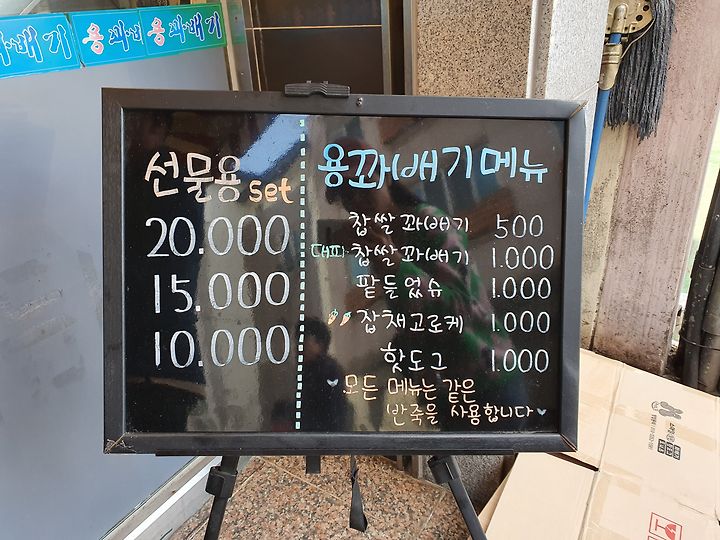 용꽈배기
용꽈배기
선물용 set
20.000
15.000
10.000
용꽈배기메뉴
찹쌀꽈배기 500
대파찹쌀꽈배기 1.000
팥들었슈 1.000
잡채고로케 1.000
핫도그 1.000
모든 메뉴는 같은
반죽을 사용합니다